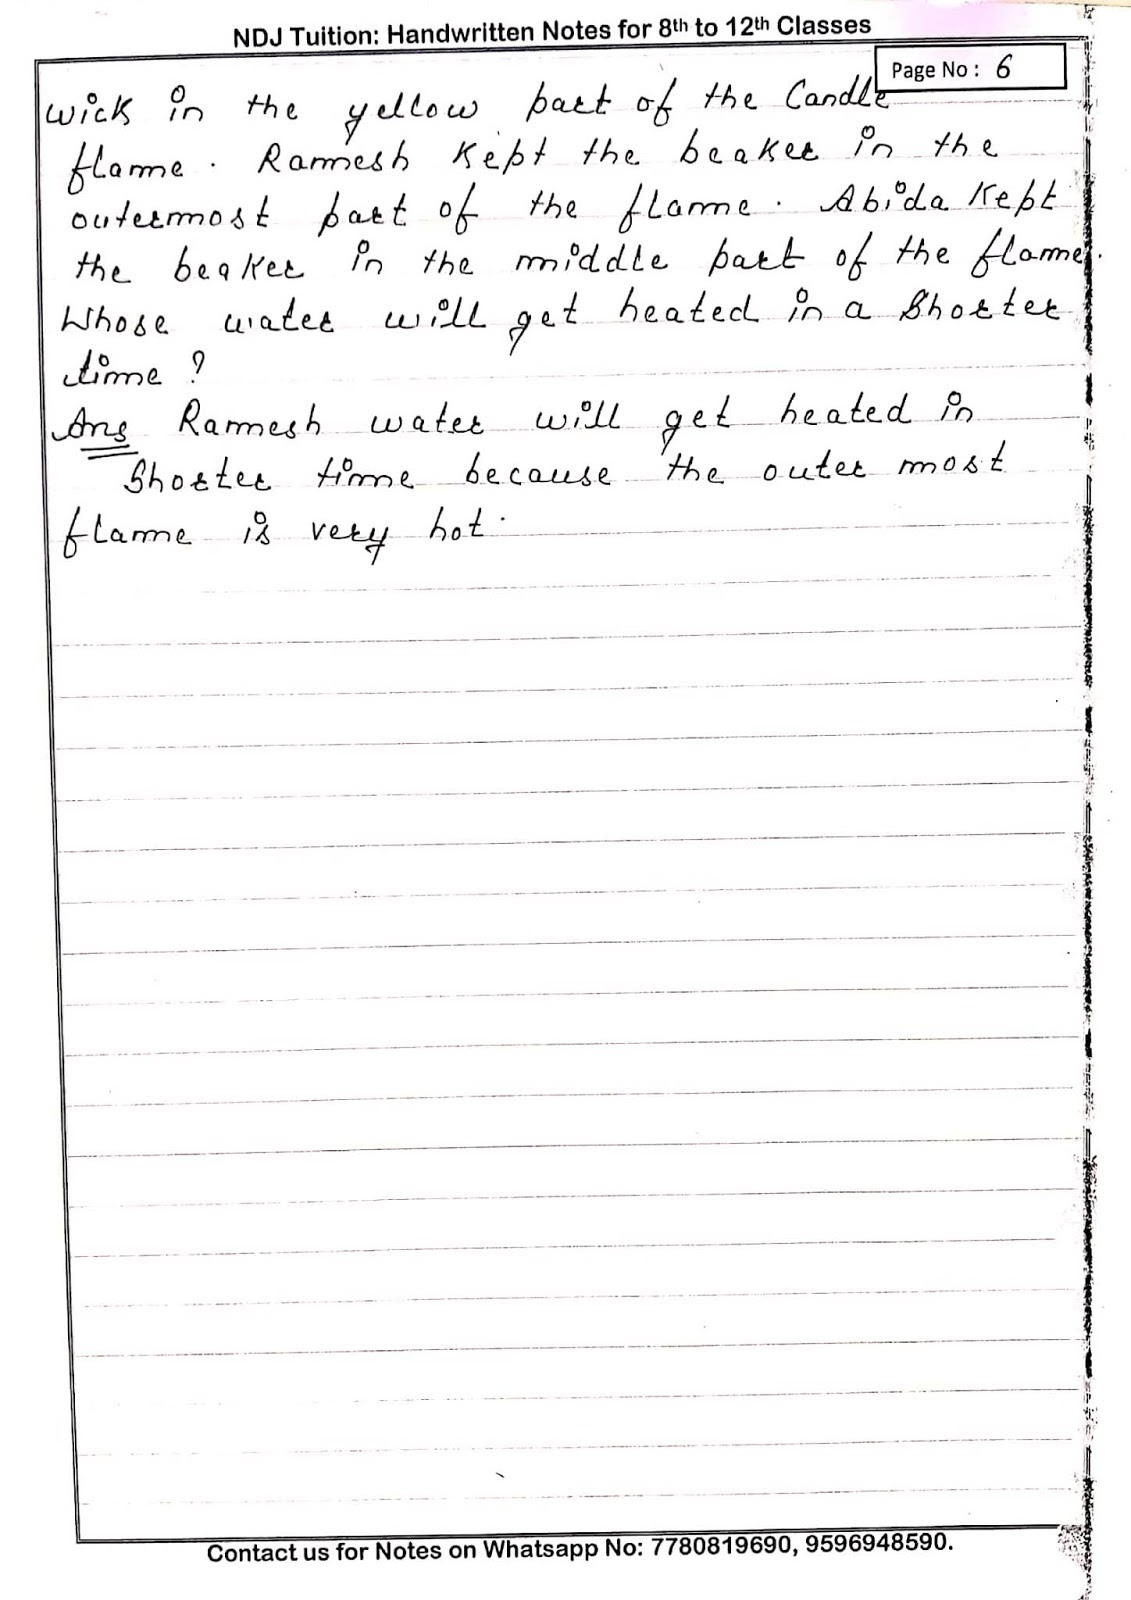 NDJ Tuition: Handwritten Notes for 8th to 12th Classes
Page No : 6
wick in the yellow part of the Candle
flame. Ramesh kept the beaker in the
outermost part of the flame. Abida kept
the beaker in the middle part of the flame.
Whose water will get heated in a Shorter
time ?
Ans Ramesh water will get heated in
Shorter time because the outer most
flame is very hot.
Contact us for Notes on Whatsapp No: 7780819690, 9596948590.